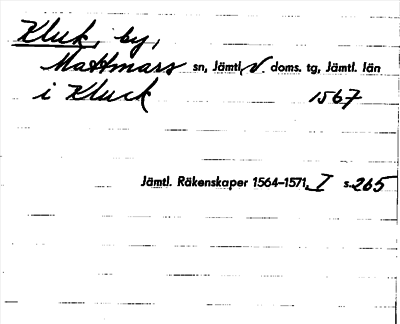 Kluk, by,
Mattmars sn, Jämtl. V. doms. tg, Jämtl. län
i Kluck 1567
Jämtl. Räkenskaper 1564–1571, I s. 265